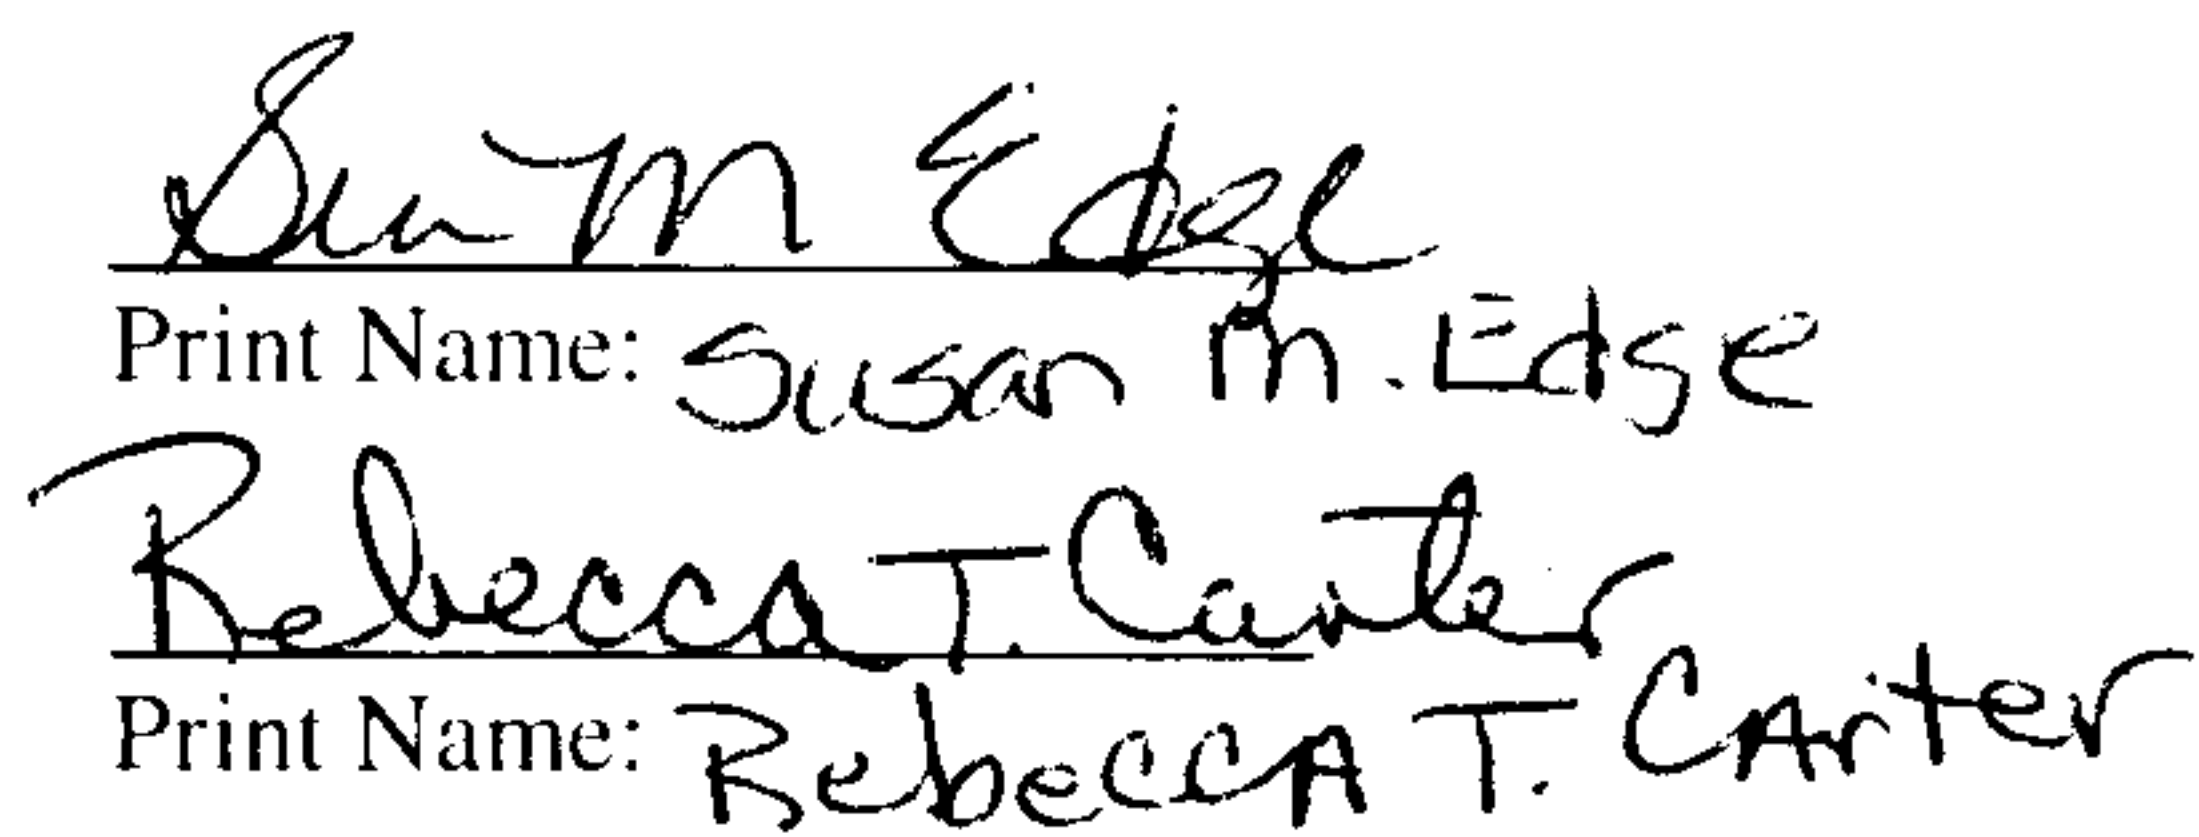 Susan M Edge
Print Name: Susan M. Edge
Rebecca T. Carter
Print Name: RebeccA T. CArter